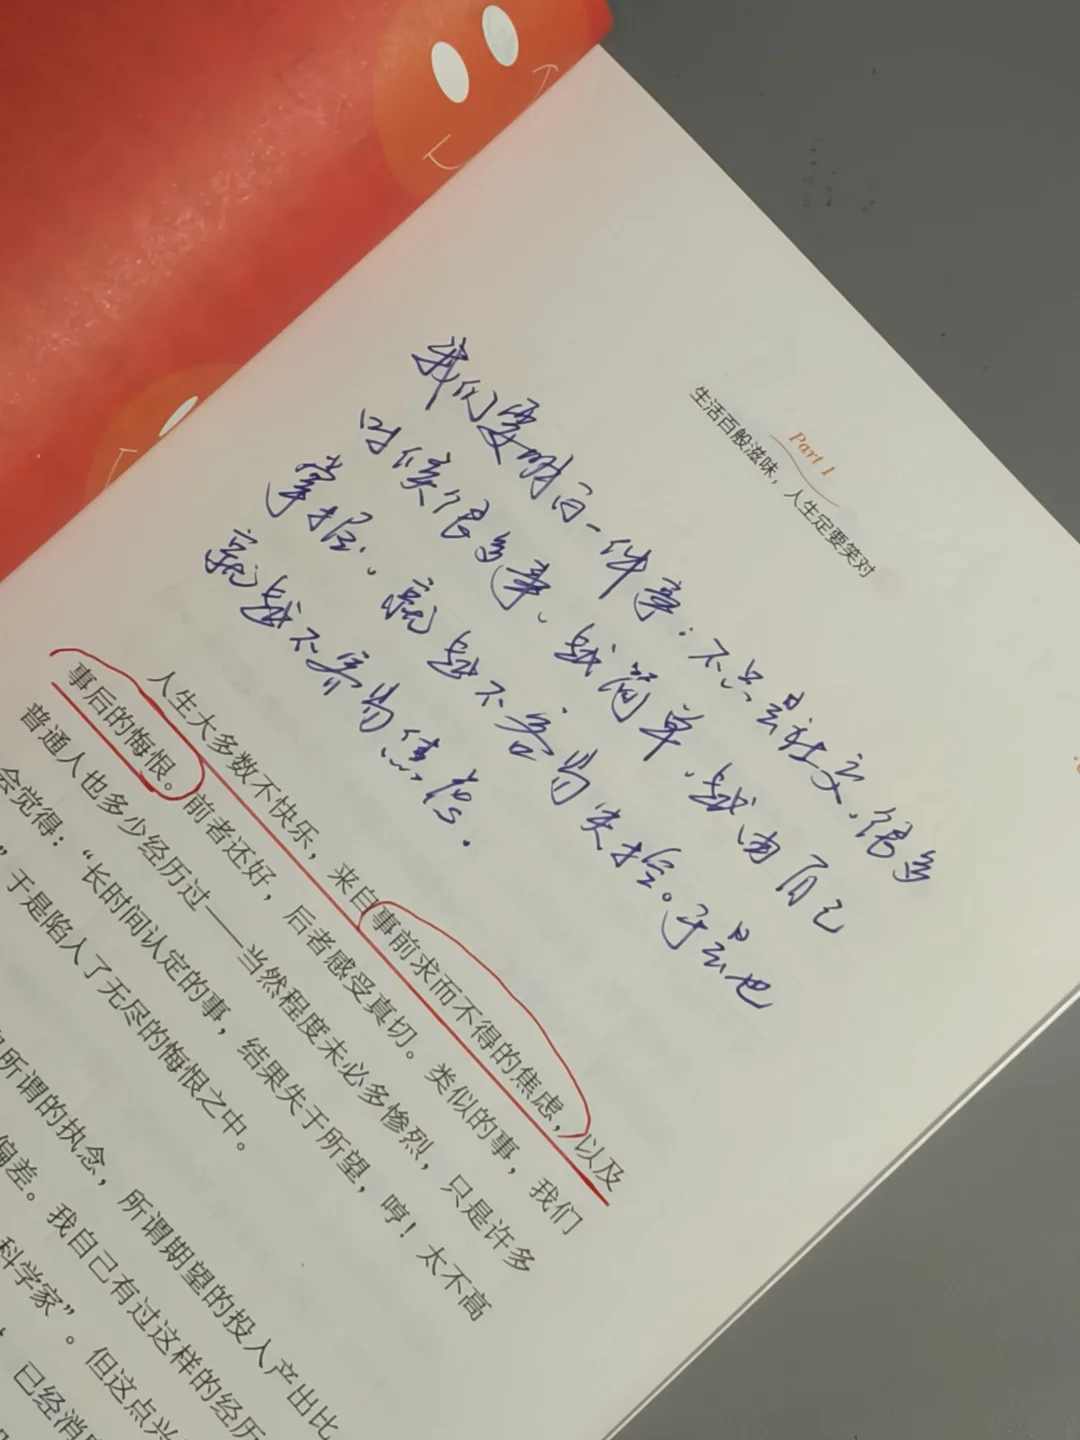 Part 1
生活百般滋味，人生定要笑对
我们要明白一件事：不只是社交，很多
时候很多事、越简单，越由自己
掌握，就越不容易失控。于是也
就越不容易焦虑。
人生大多数不快乐，来自事前求而不得的焦虑，以及
事后的悔恨。前者还好，后者感受真切。类似的事，我们
普通人也多少经历过——当然程度未必多惨烈，只是许多
会觉得：“长时间认定的事，结果失于所望，哼！太不高
”于是陷入了无尽的悔恨之中。
所谓的执念，所谓期望的投入产出比
偏差。我自己有过这样的经历
科学家”。但这点兴
已经消